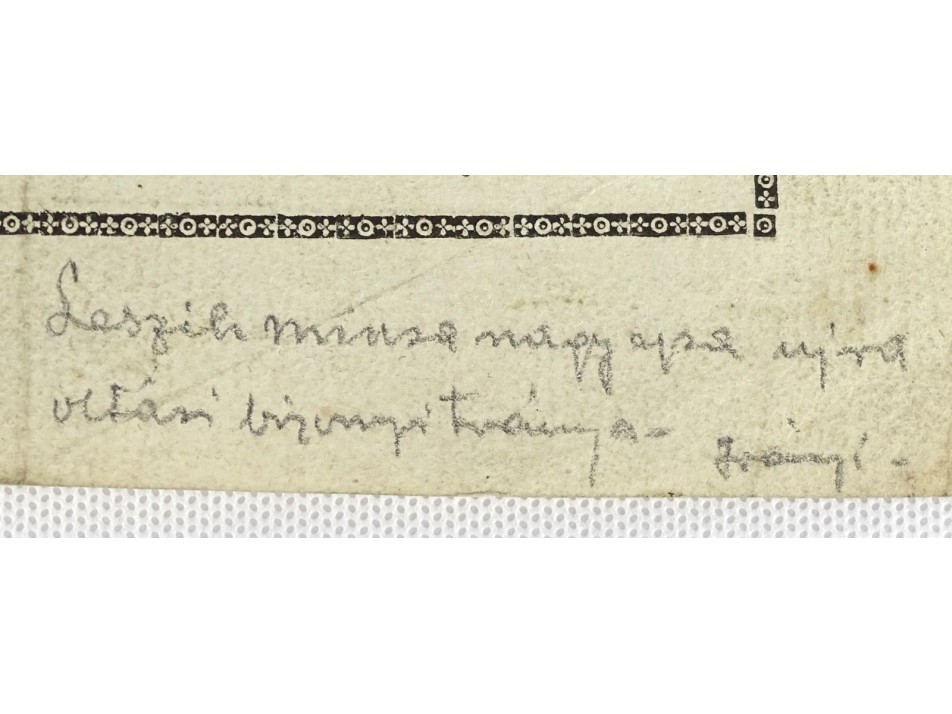 Leszih musa nagyapja újra
oltási bizonyítványa - Irányi -